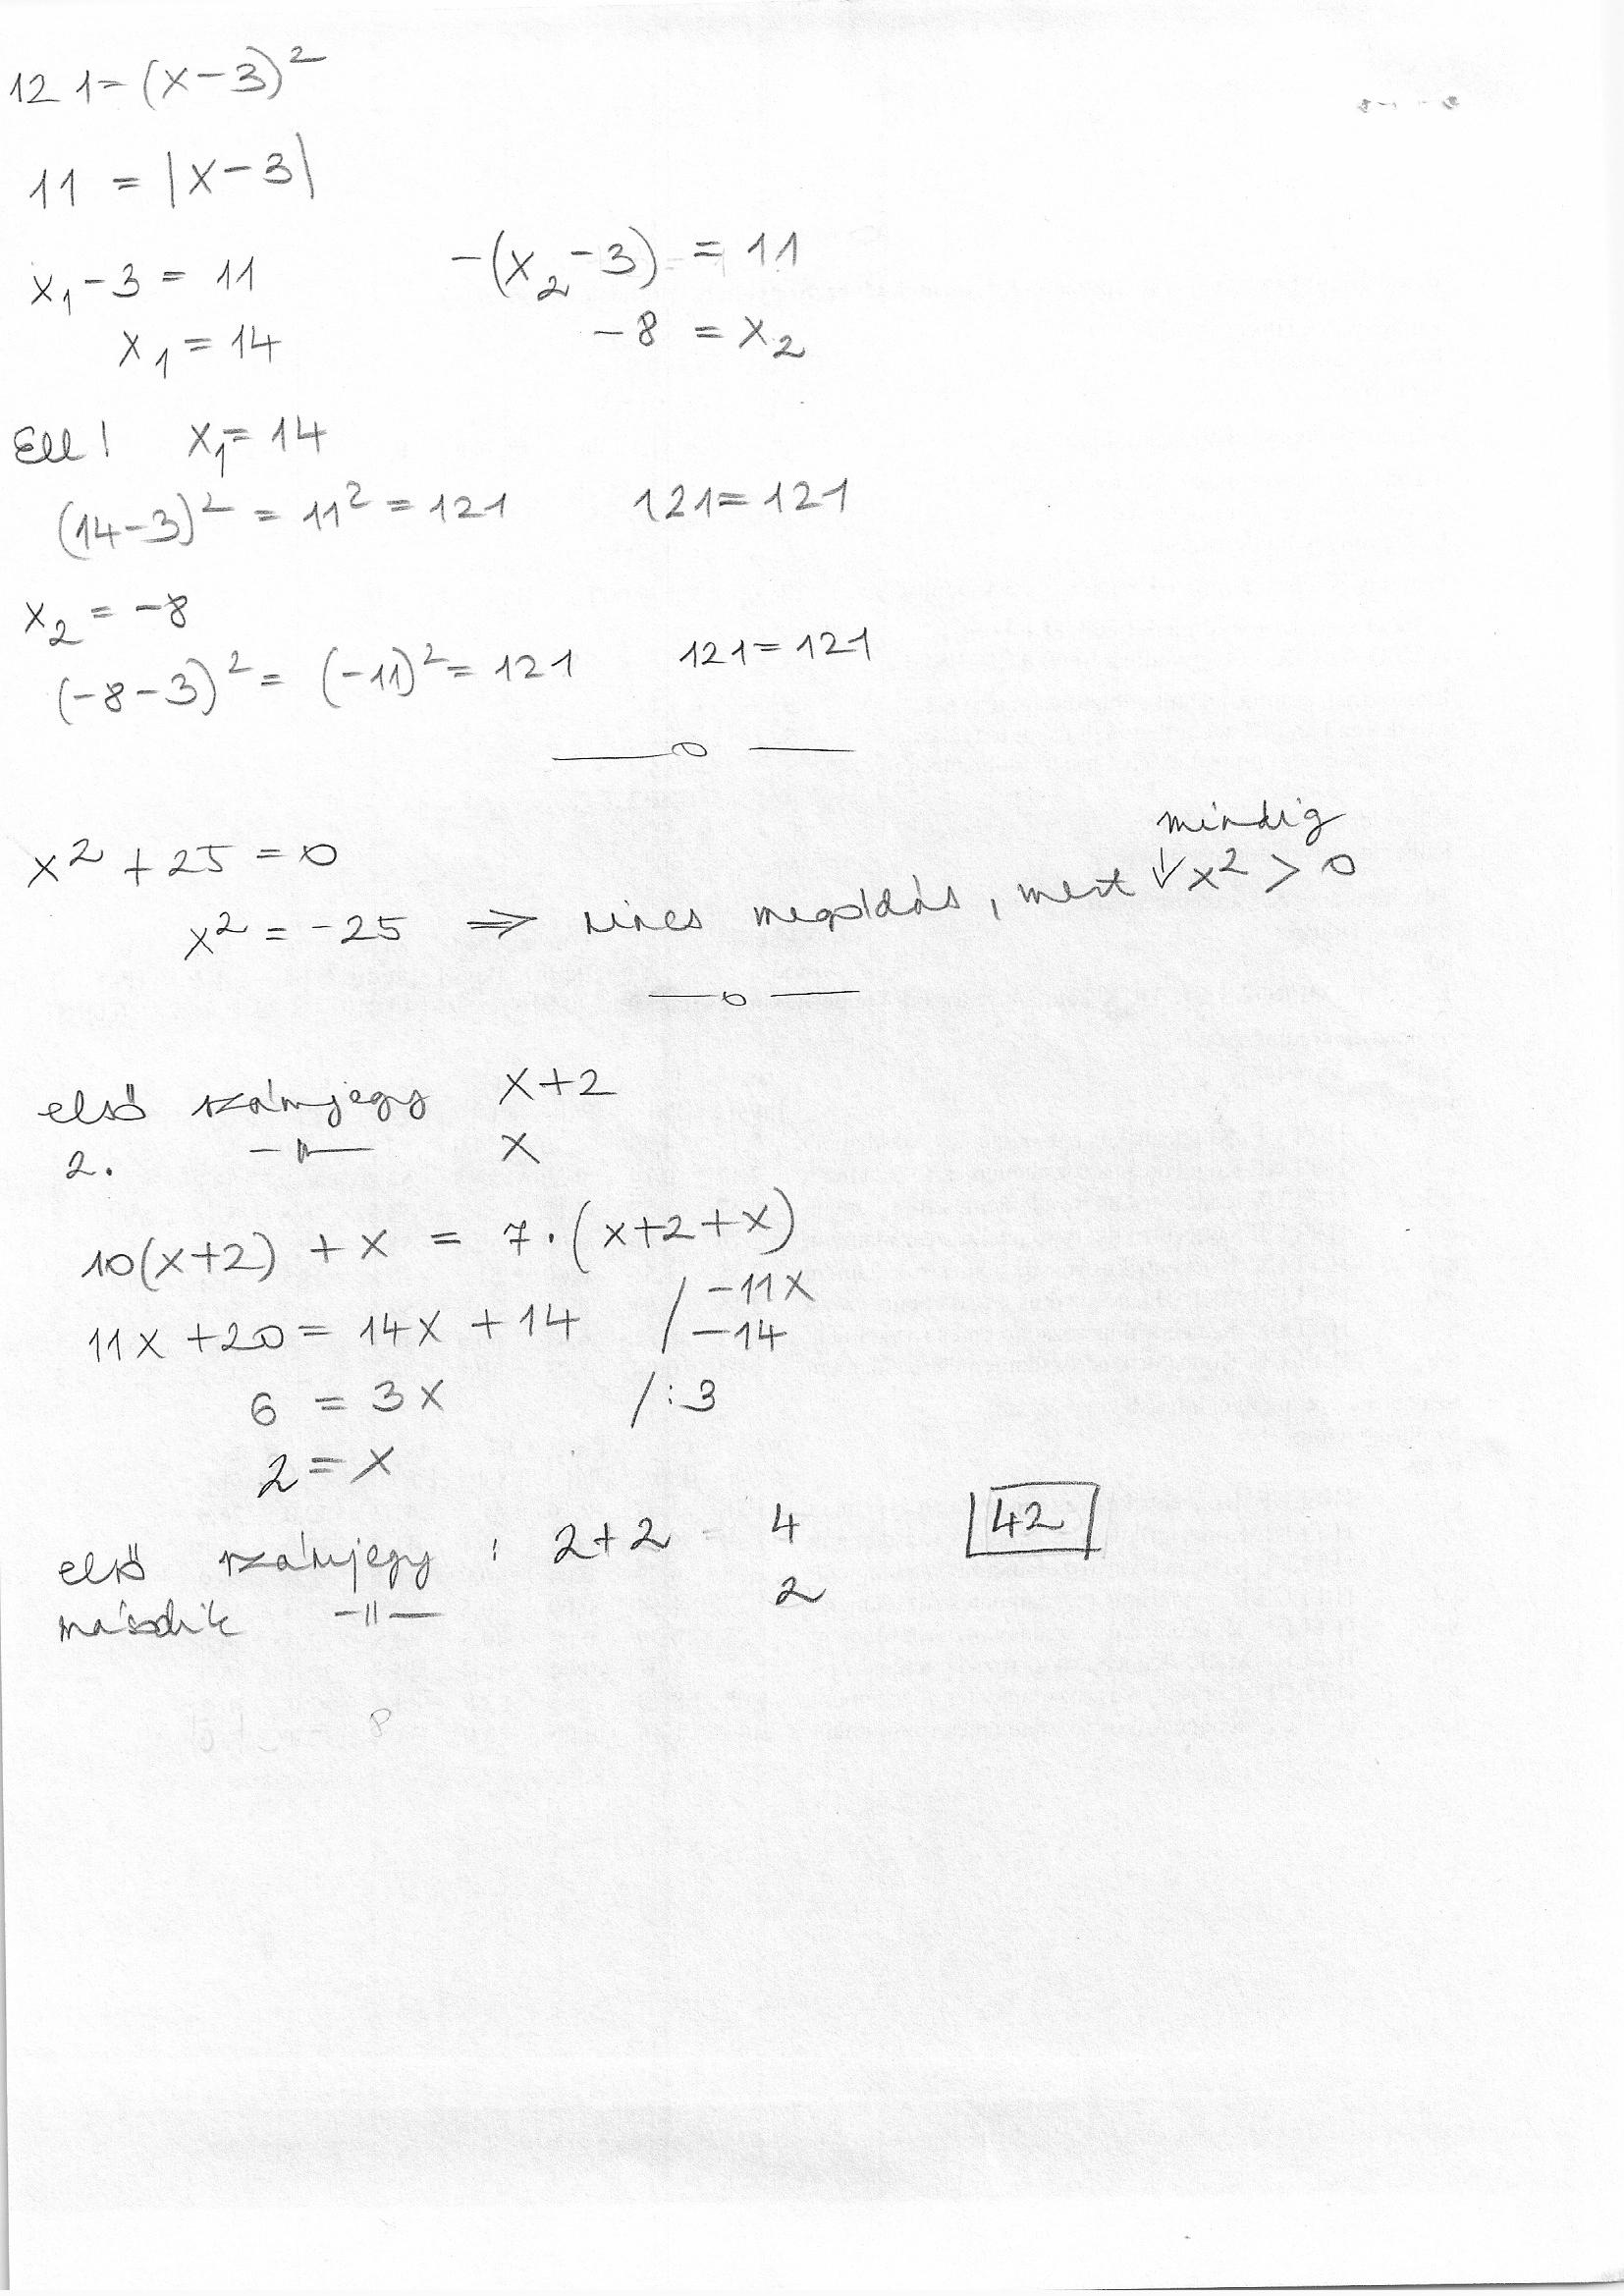 121 = (x-3)²
11 = |x-3|
x₁-3 = 11    -(x₂-3) = 11
x₁ = 14    -8 = x₂
Ell! x₁ = 14
(14-3)² = 11² = 121    121 = 121
x₂ = -8
(-8-3)² = (-11)² = 121    121 = 121
—o—
mindig
x² + 25 = 0
x² = -25 ⇒ nincs megoldás, mert ↓ x² > 0
—o—
első számjegy x+2
2. —〃— x
10(x+2) + x = 7·(x+2+x)
11x + 20 = 14x + 14 / -11x -14
6 = 3x /:3
2 = x
első számjegy : 2+2 = 4    42
második —〃— 2